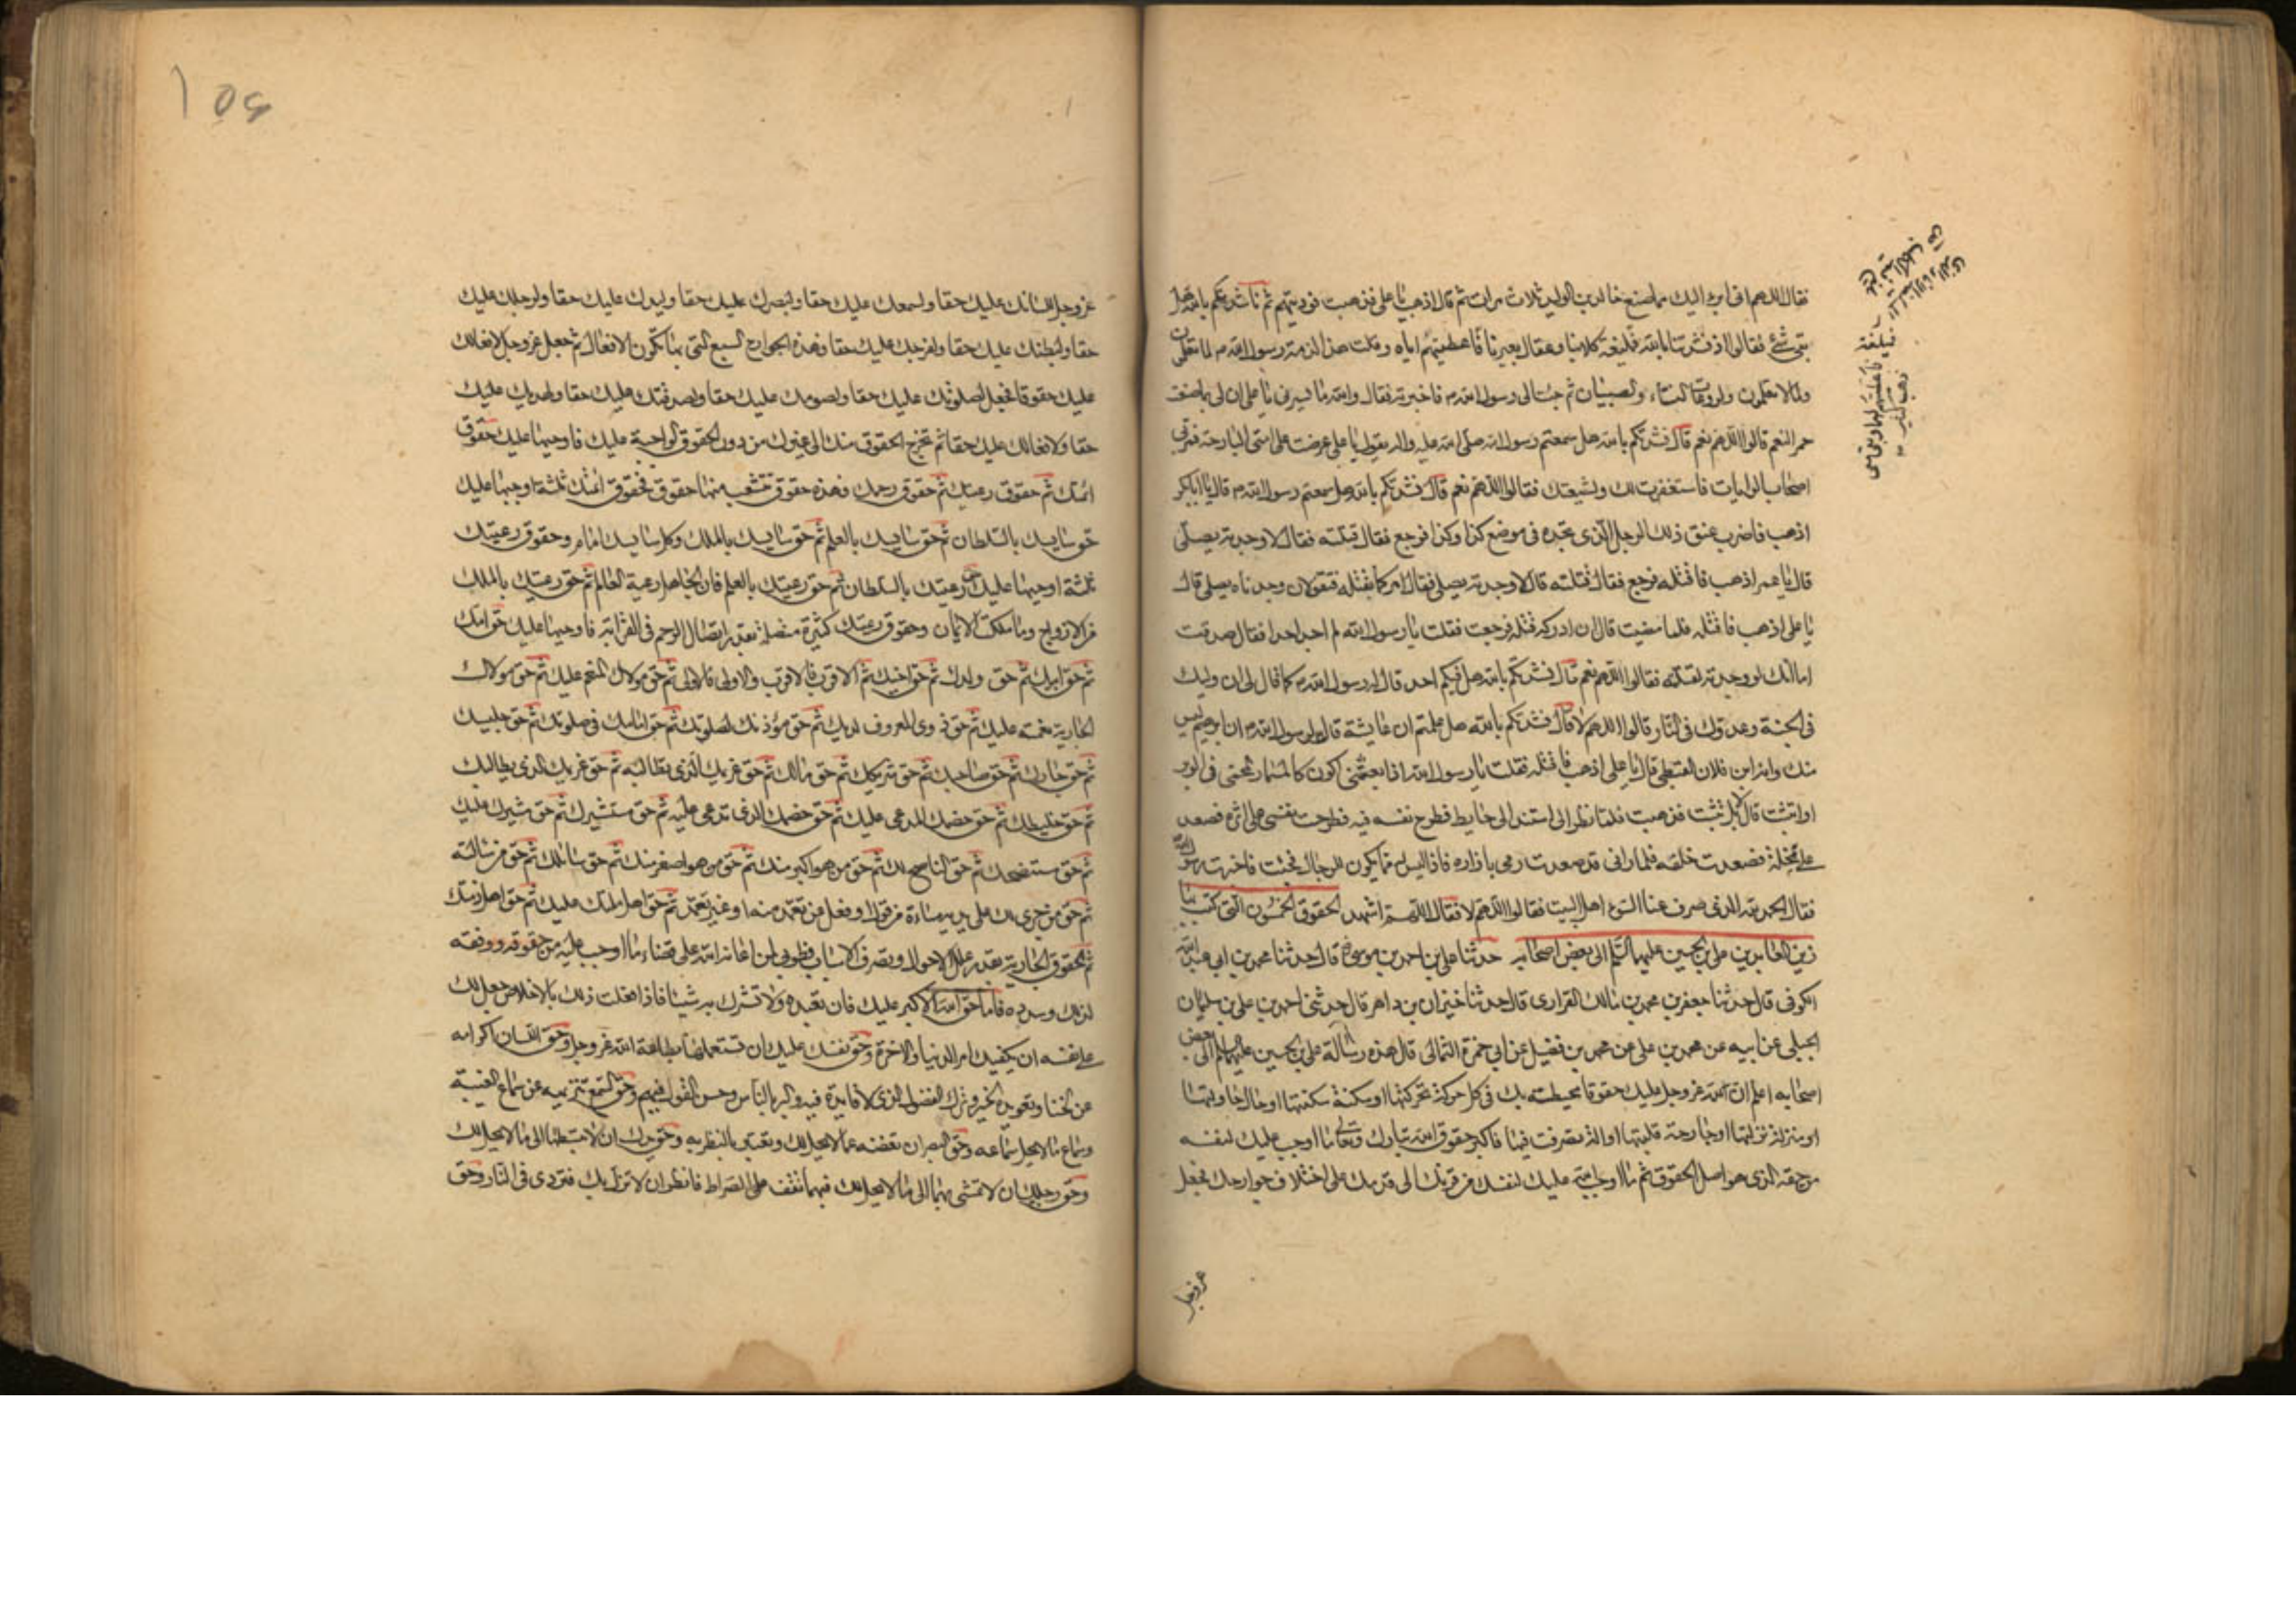 فقال اللهم انى ابرء اليك مما صنع خالد بن الوليد ثلاث مرات ثم قال اذهب يا على فذهبت فوديتهم ثم ناشدتكم بالله هل
بقى شئ فقالوا اذ نشدتنا بالله فميلغة كلابنا وعقال بعيرنا فاعطيتهم اياه وقلت هذا لذمة رسول الله ص لما تعلمون
ولما لا تعلمون ولروعات النساء والصبيان ثم جئت الى رسول الله ص فاخبرته فقال والله ما يسرنى يا على ان لى بما صنعت
حمر النعم قالوا اللهم نعم قال نشدتكم بالله هل سمعتم رسول الله صلى الله عليه واله يقول يا على عرضت على امتى البارحة فمر بى
اصحاب الرايات فاستغفرت لك ولشيعتك فقالوا اللهم نعم قال نشدتكم بالله هل سمعتم رسول الله ص قال يا ابا بكر
اذهب فاضرب عنق ذلك الرجل الذى تجده فى موضع كذا وكذا فرجع فقال قتلته فقال لا وجدته يصلى
قال يا عمر اذهب فاقتله فرجع فقال قتلته قال لا وجدته يصلى فقال امركما بقتله فتقولان وجدناه يصلى قال
يا على اذهب فاقتله فلما مضيت قال ان ادركه قتله فرجعت فقلت يا رسول الله لم اجد احدا فقال صدقت
اما انك لو وجدته لقتلته فقالوا اللهم نعم قال نشدتكم بالله هل فيكم احد قال له رسول الله ص كما قال لى ان وليك
فى الجنة وعدوك فى النار قالوا اللهم لا قال نشدتكم بالله هل علمتم ان عايشة قالت لرسول الله ص ان ابرهيم ليس
منك وانه ابن فلان القبطى قال يا على اذهب فاقتله فقلت يا رسول الله اذا بعثتنى اكون كالمسمار المحمى فى الوبر
او اتثبت قال لا بل تثبت فذهبت فلما نظر الى استند الى حايط فطرح نفسه فيه فطرحت نفسى على اثره فصعد
على نخلة فصعدت خلفه فلما رانى قد صعدت رمى بازاره فاذا ليس له مما يكون للرجال فجئت فاخبرت رسول الله
فقال الحمد لله الذى صرف عنا السوء اهل البيت فقالوا اللهم لا فقال اللهم اشهد الحقوق الخمسون التى كتب بها
زين العابدين على بن الحسين عليهما السلم الى بعض اصحابه حدثنا على بن احمد بن موسى رض قال حدثنا محمد بن ابى عبد الله
الكوفى قال حدثنا جعفر بن محمد بن مالك الفزارى قال حدثنا خيزان بن داهر قال حدثنى احمد بن على بن سليمان
الجبلى عن ابيه عن محمد بن على عن محمد بن فضيل عن ابى حمزة الثمالى قال هذه رسالة على بن الحسين عليهما السلم الى بعض
اصحابه اعلم ان لله عز وجل عليك حقوقا محيطة بك فى كل حركة تحركتها او سكنة سكنتها او حال حلتها
او منزلة نزلتها او جارحة قلبتها او الة تصرفت فيها فاكبر حقوق الله تبارك وتعالى ما اوجب عليك لنفسه
من حقه الذى هو اصل الحقوق ثم ما اوجب الله عليك لنفسك من قرنك الى قدمك على اختلاف جوارحك فجعل
عز وجل
عز وجل للسانك عليك حقا ولسمعك عليك حقا ولبصرك عليك حقا وليدك عليك حقا ولرجلك عليك
حقا ولبطنك عليك حقا ولفرجك عليك حقا فهذه الجوارح السبع التى بها تكون الافعال ثم جعل عز وجل لافعالك
عليك حقوقا فجعل لصلوتك عليك حقا ولصومك عليك حقا ولصدقتك عليك حقا ولهديك عليك
حقا ولافعالك عليك حقا ثم تخرج الحقوق منك الى غيرك من ذوى الحقوق الواجبة عليك فاوجبها عليك حقوق
ائمتك ثم حقوق رعيتك ثم حقوق رحمك فهذه حقوق تتشعب منها حقوق فحقوق ائمتك ثلثة اوجبها عليك
حق سايسك بالسلطان ثم حق سايسك بالعلم ثم حق سايسك بالملك وكل سايس امام وحقوق رعيتك
ثلثة اوجبها عليك حق رعيتك بالسلطان ثم حق رعيتك بالعلم فان الجاهل رعية العالم ثم حق رعيتك بالملك
من الازواج وما ملكت الايمان وحقوق رعيتك كثيرة متصلة بقدر اتصال الرحم فى القرابة فاوجبها عليك حق امك
ثم حق ابيك ثم حق ولدك ثم حق اخيك ثم الاقرب فالاقرب والاولى فالاولى ثم حق مولاك المنعم عليك ثم حق مولاك
الجارية نعمته عليك ثم حق ذوى المعروف لديك ثم حق مؤذنك لصلوتك ثم حق امامك فى صلوتك ثم حق جليسك
ثم حق جارك ثم حق صاحبك ثم حق شريكك ثم حق مالك ثم حق غريمك الذى تطالبه ثم حق غريمك الذى يطالبك
ثم حق خليطك ثم حق خصمك المدعى عليك ثم حق خصمك الذى تدعى عليه ثم حق مستشيرك ثم حق المشير عليك
ثم حق مستنصحك ثم حق الناصح لك ثم حق من هو اكبر منك ثم حق من هو اصغر منك ثم حق سائلك ثم حق من سالته
ثم حق من جرى لك على يديه مساءة من قول او فعل عن تعمد منه او غير تعمد ثم حق اهل ملتك عليك ثم حق اهل ذمتك
ثم الحقوق الجارية بقدر علل الاحوال وتصرف الاسباب فطوبى لمن اعانه الله على قضاء ما اوجب عليه من حقوقه ووفقه
لذلك وسدده فاما حق الله الاكبر عليك فان تعبده ولا تشرك به شيئا فاذا فعلت ذلك بالاخلاص جعل لك
على نفسه ان يكفيك امر الدنيا والاخرة وحق نفسك عليك ان تستعملها بطاعة الله عز وجل وحق اللسان اكرامه
عن الخنا وتعويده الخير وترك الفضول الذى لا فايدة فيه والبر بالناس وحسن القول فيهم وحق السمع تنزيهه عن سماع الغيبة
وسماع ما لا يحل سماعه وحق البصر ان تغضه عما لا يحل لك وتعتبر بالنظر به وحق يدك ان لا تبسطها الى ما لا يحل لك
وحق رجليك ان لا تمشى بهما الى ما لا يحل لك فبهما تقف على الصراط فانظر ان لا تزل بك فتردى فى النار وحق